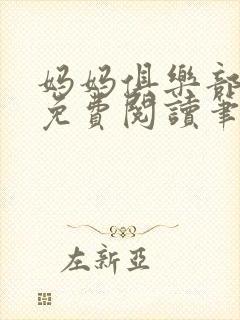 妈妈俱樂部
免費閱讀筆
左新亞